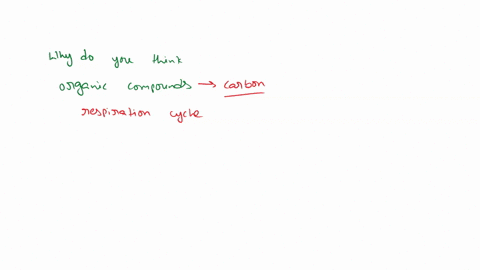 Why do you think
organic compounds → carbon
respiration cycle